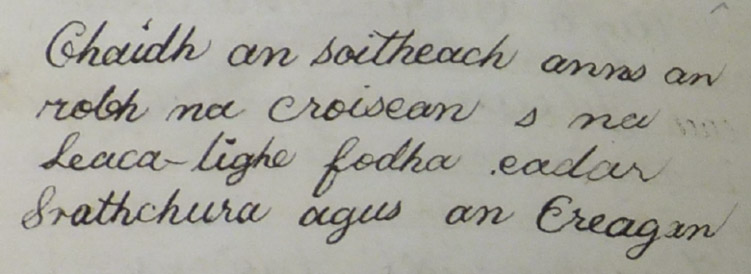 Chaidh an soitheach anns an
robh na croisean s na
Leaca-lighe fodha eadar
Srathchura agus an Creagan